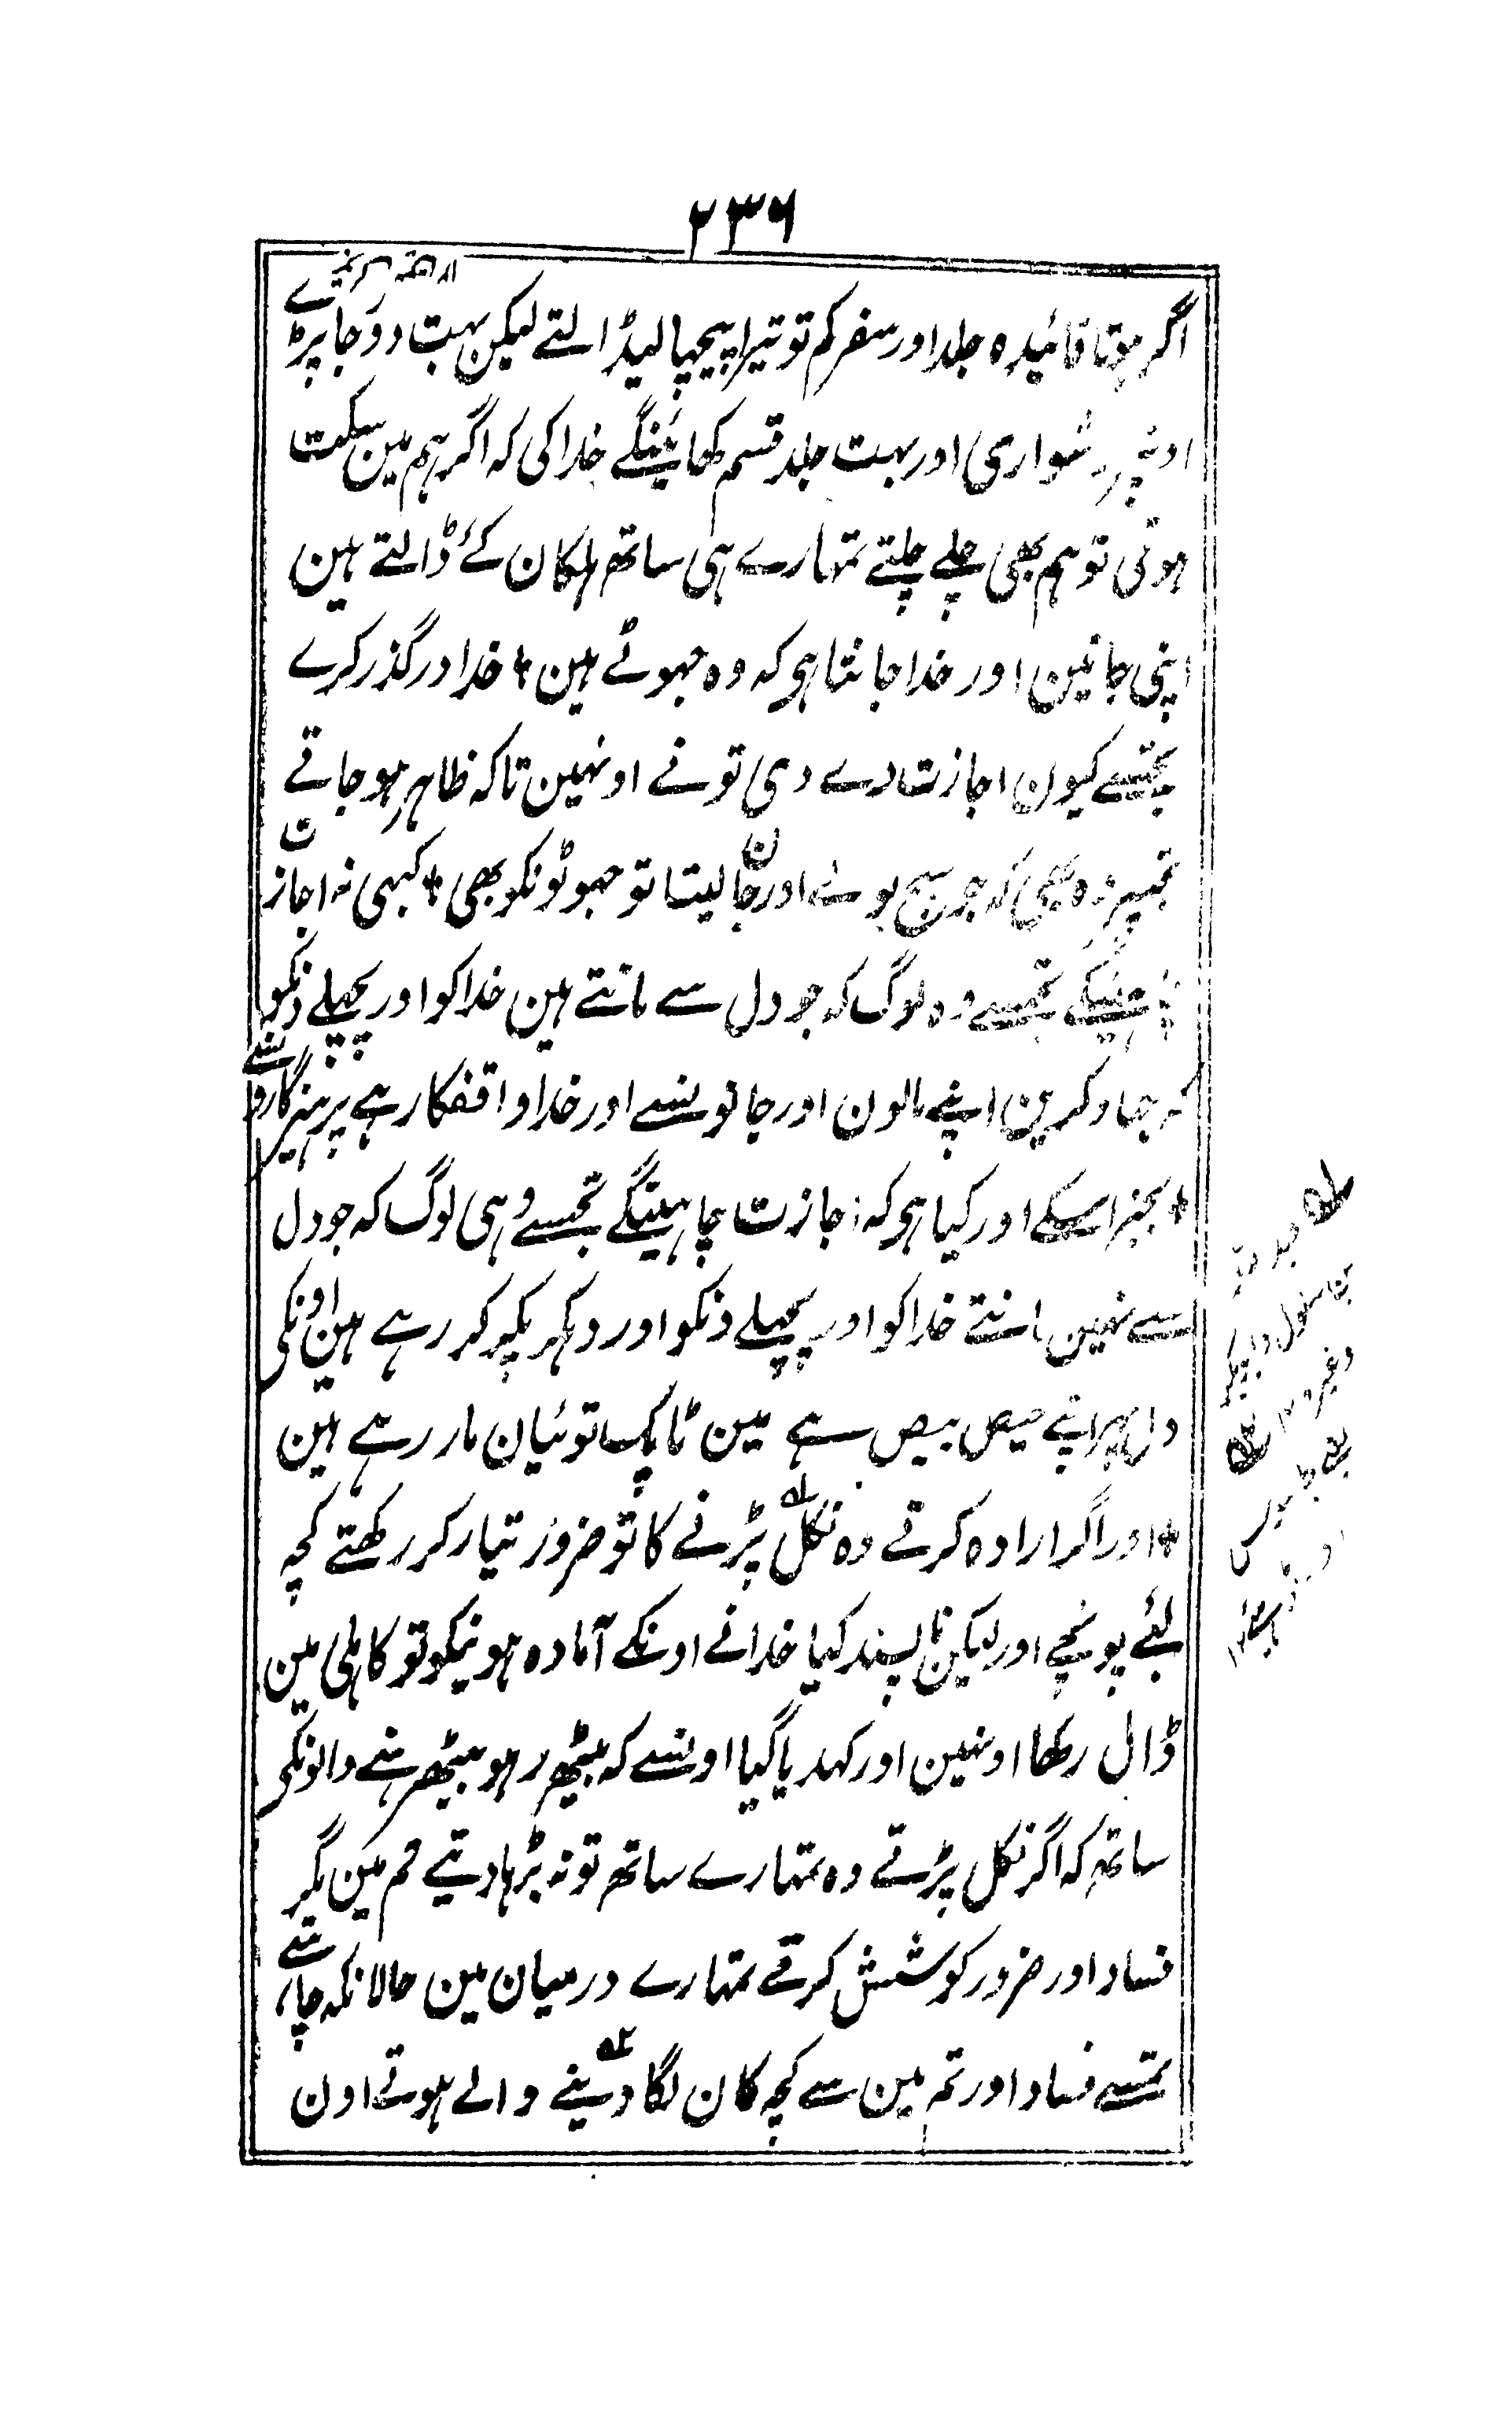 ۲۳۶
اگر ہوتا فائیدہ جلد اور سفر کم تو تیرا پیچہا لیڈالتے لیکن بہت دور جا پڑے
اونپر دشواری اور بہت جلد قسم کھائینگے خدا کی کہ اگر ہم مین سکت
ہوتی تو ہم بھی چلے چلتے تمہارے ہی ساتھ ہلکان کئے ڈالتے ہین
اپنی جانین اور خدا جانتا ہی کہ وہ جہوٹے ہین * خدا درگذر کرے
تجھسے کیون اجازت دے دی تونے اونہین تاکہ ظاہر ہو جاتے
تجہپر وہ بھی کہ جو سچ بولے اور جان لیتا تو جہوٹونکو بھی * کبہی نہ اجازت
چاہینگے تجھسے وہ لوگ کہ جو دل سے مانتے ہین خدا کو اور پچہلے دنکو
کہ جہاد کرین اپنے مالون اور جانونسے اور خدا واقفکار ہے پرہیزگارونسے
* بجز اسکے اور کیا ہی کہ اجازت چاہینگے تجھسے وہی لوگ کہ جو دل
سے نہین مانتے خدا کو اور پچہلے دنکو اور دہکر پکر کر رہے ہین اونکی
دل پہر اپنے حیص بیص ہے مین ٹاپک توئیان مار رہے ہین
* اور اگر ارادہ کرتے وہ نکل پڑنے کا تو ضرور تیار کر رکھتے کچہ
لئے پونجے اور لیکن ناپسند کیا خدانے اونکے آمادہ ہونیکو تو کاہلی مین
ڈال رکھا اونہین اور کہدیا گیا اونسے کہ بیٹھ رہو بیٹھ رہنے والونکی
ساتھ کہ اگر نکل پڑتے وہ تمہارے ساتھ تو نہ بڑہا دیتے تم مین مگر
فساد اور ضرور کوشش کرتے تمہارے درمیان مین حالانکہ چاہتے
تمسے فساد اور تم مین سے کچہ کان لگا دینے والے ہوتے اون